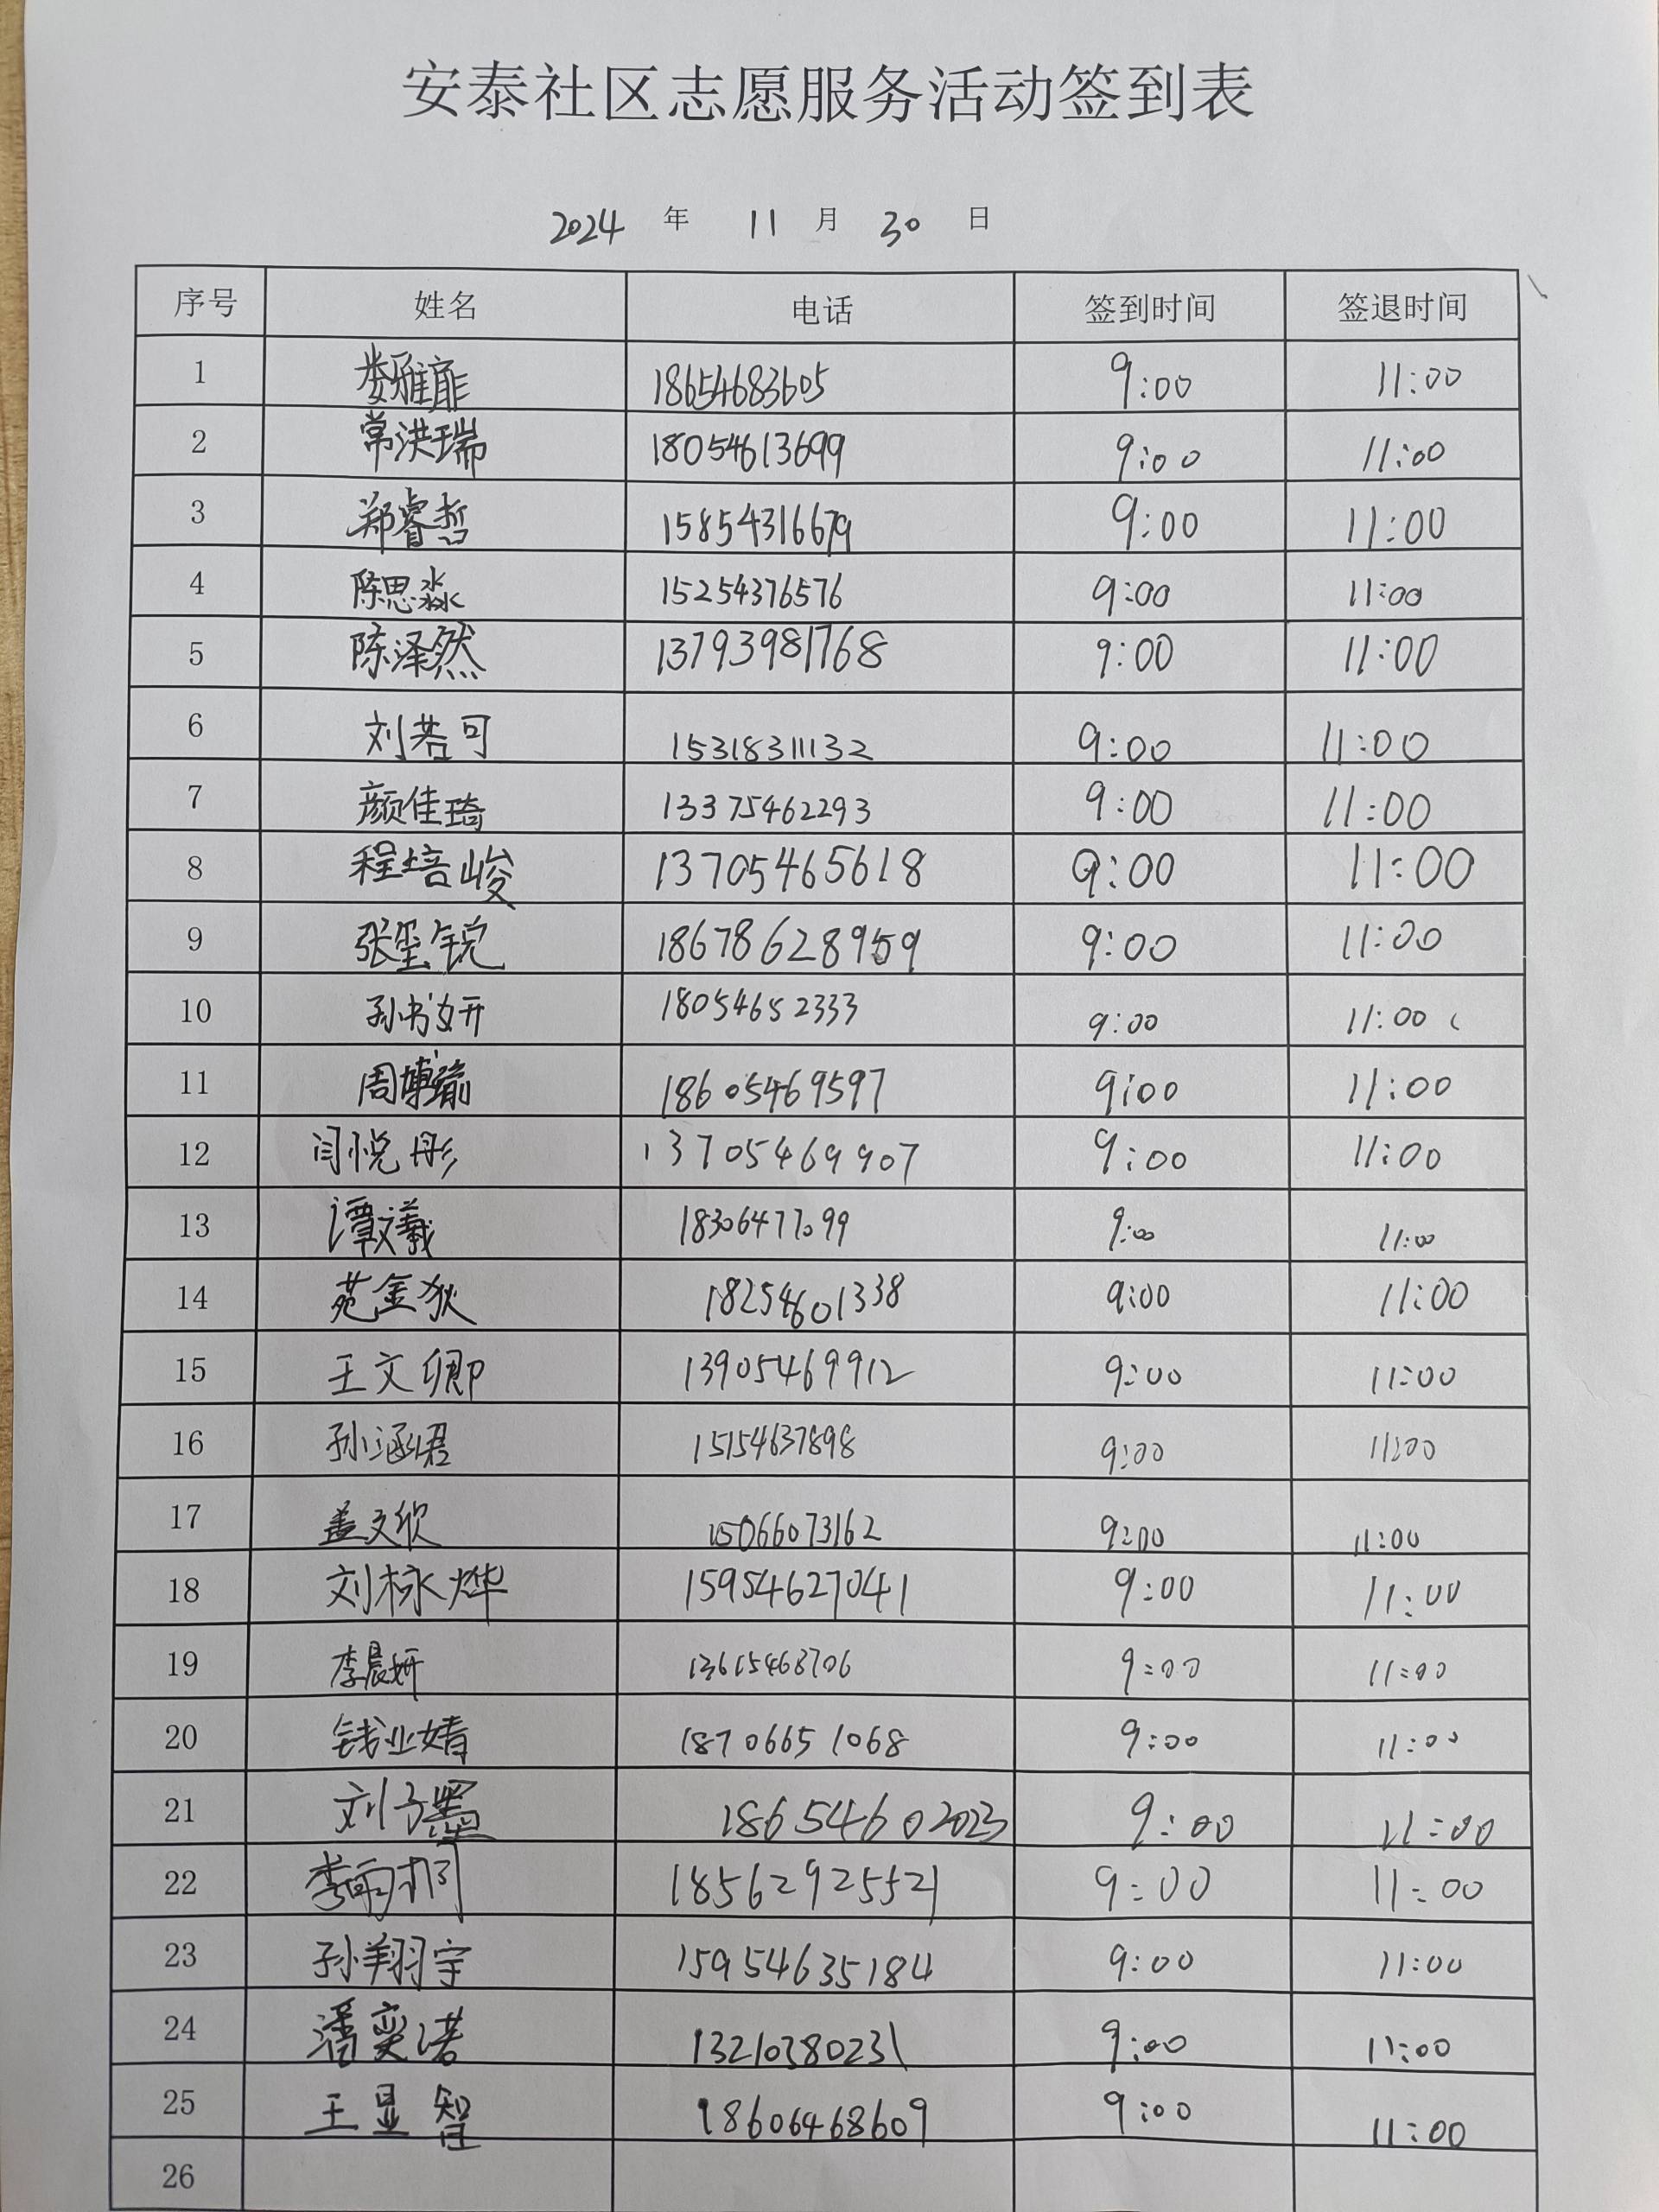 安泰社区志愿服务活动签到表
2024 年 11 月 30 日
序号 姓名 电话 签到时间 签退时间
1 娄雅䨾 18654683605 9:00 11:00
2 常洪瑞 18054613699 9:00 11:00
3 郑睿哲 15854316679 9:00 11:00
4 陈思淼 15254376576 9:00 11:00
5 陈泽然 13793981768 9:00 11:00
6 刘若可 15318311132 9:00 11:00
7 颜佳琦 13375462293 9:00 11:00
8 程培峻 13705465618 9:00 11:00
9 张玺锐 18678628959 9:00 11:00
10 孙书妍 18054652333 9:00 11:00
11 周博瑜 18605469597 9:00 11:00
12 闫悦彤 13705469907 9:00 11:00
13 谭文羲 18306477099 9:00 11:00
14 苑金狄 18254601338 9:00 11:00
15 王文卿 13905469912 9:00 11:00
16 孙涵珺 15154637898 9:00 11:00
17 盖文欣 15066073162 9:00 11:00
18 刘栐烨 15954627041 9:00 11:00
19 李晨妍 13615468706 9:00 11:00
20 钱业婧 18706651068 9:00 11:00
21 刘子墨 18654602023 9:00 11:00
22 李雨桐 18562925521 9:00 11:00
23 孙翔宇 15954635184 9:00 11:00
24 潘奕诺 13210380231 9:00 11:00
25 王显智 18606468609 9:00 11:00
26